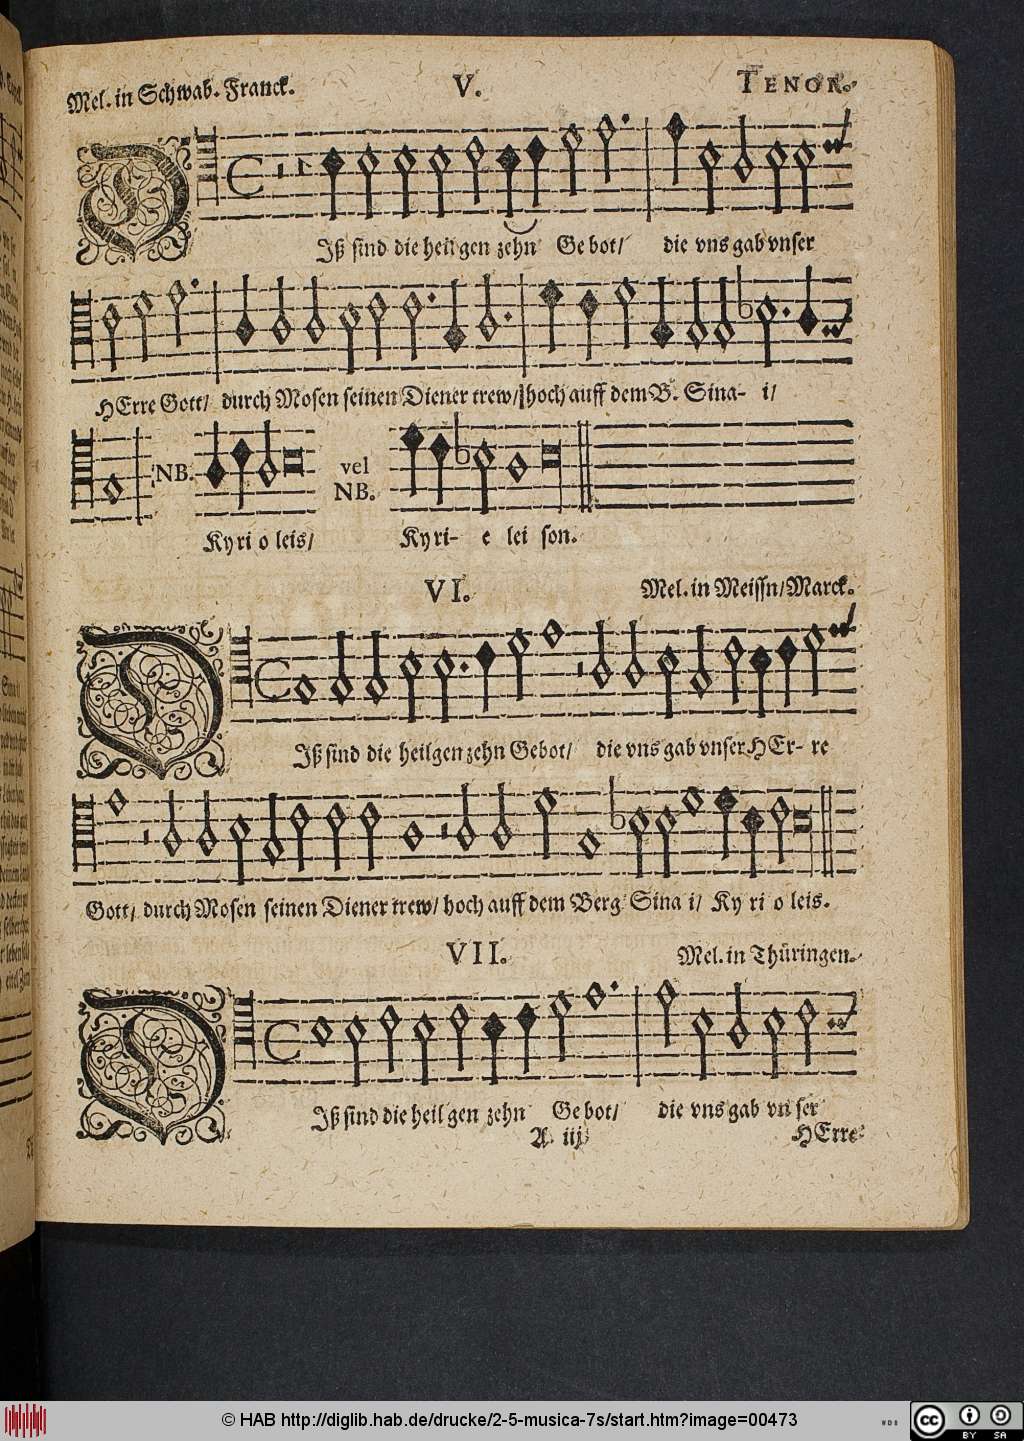 Mel. in Schwab. Franck. V. TENOR.
DIß sind die heilgen zehn Gebot/ die vns gab vnser
HErre Gott/ durch Mosen seinen Diener trew/ hoch auff dem B. Sina- i/
NB. vel NB.
Kyri o leis/ Kyri- e lei son.
VI. Mel. in Meissn/Marck.
DIß sind die heilgen zehn Gebot/ die vns gab vnser HEr- re
Gott/ durch Mosen seinen Diener trew/ hoch auff dem Berg Sina i/ Ky ri o leis.
VII. Mel. in Thüringen.
DIß sind die heilgen zehn Gebot/ die vns gab vnser
A iij HErre
© HAB http://diglib.hab.de/drucke/2-5-musica-7s/start.htm?image=00473
WDB
cc BY SA